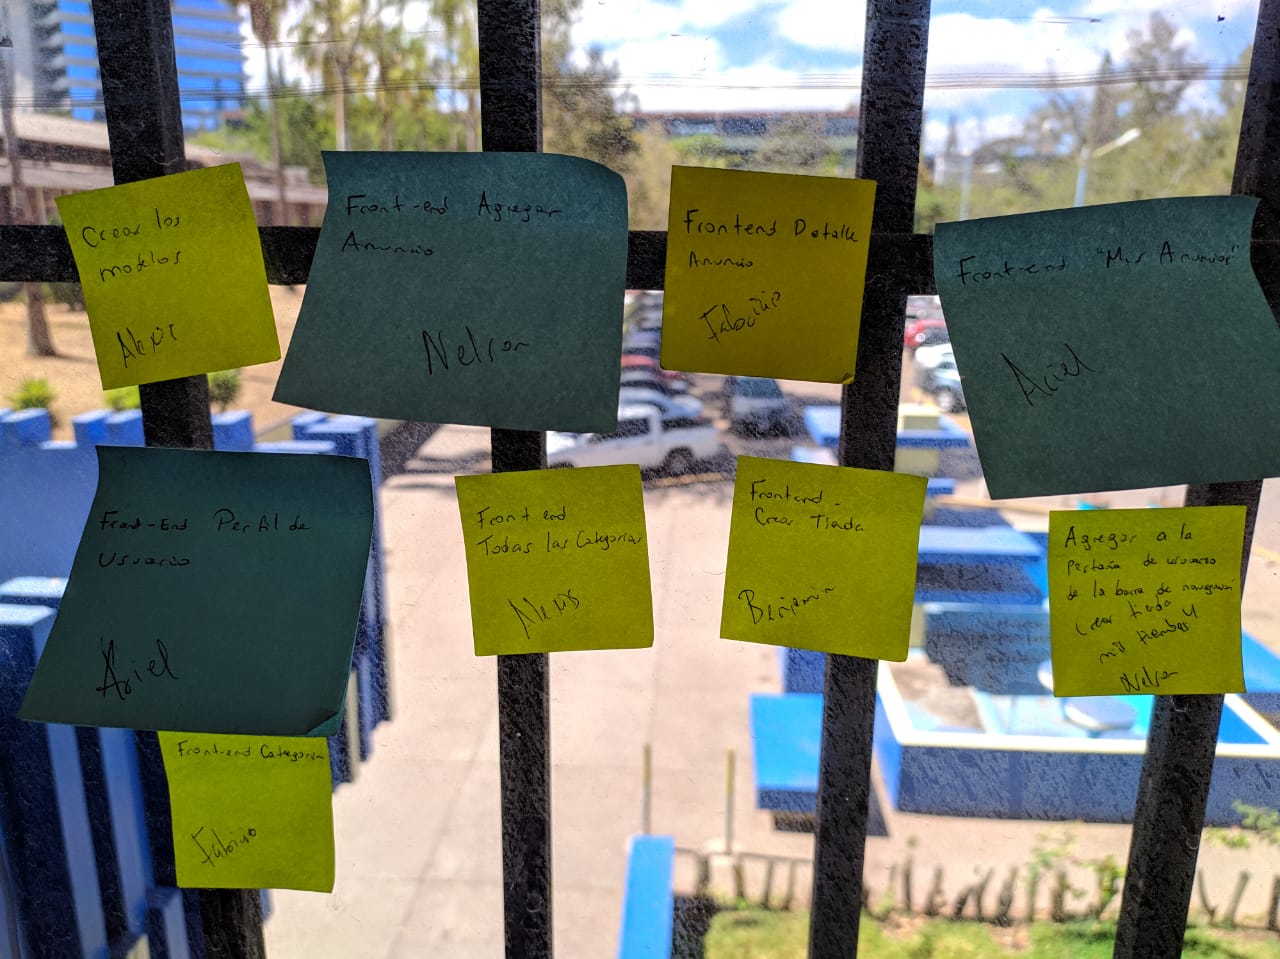 Crear los
modelos
Alexis
Front-end Agregar
Anuncio
Nelson
Frontend Detalle
Anuncio
Fabricio
Front-end "Mis Anuncios"
Ariel
Front-End Perfil de
Usuario
Ariel
Front end
Todas las Categorias
Alexis
Frontend
Crear Tienda
Benjamin
Agregar a la
Pestaña de usuario
de la barra de navegacion
Crear tienda y
mis tiendas
Nelson
Front-end Categoria
Fabricio